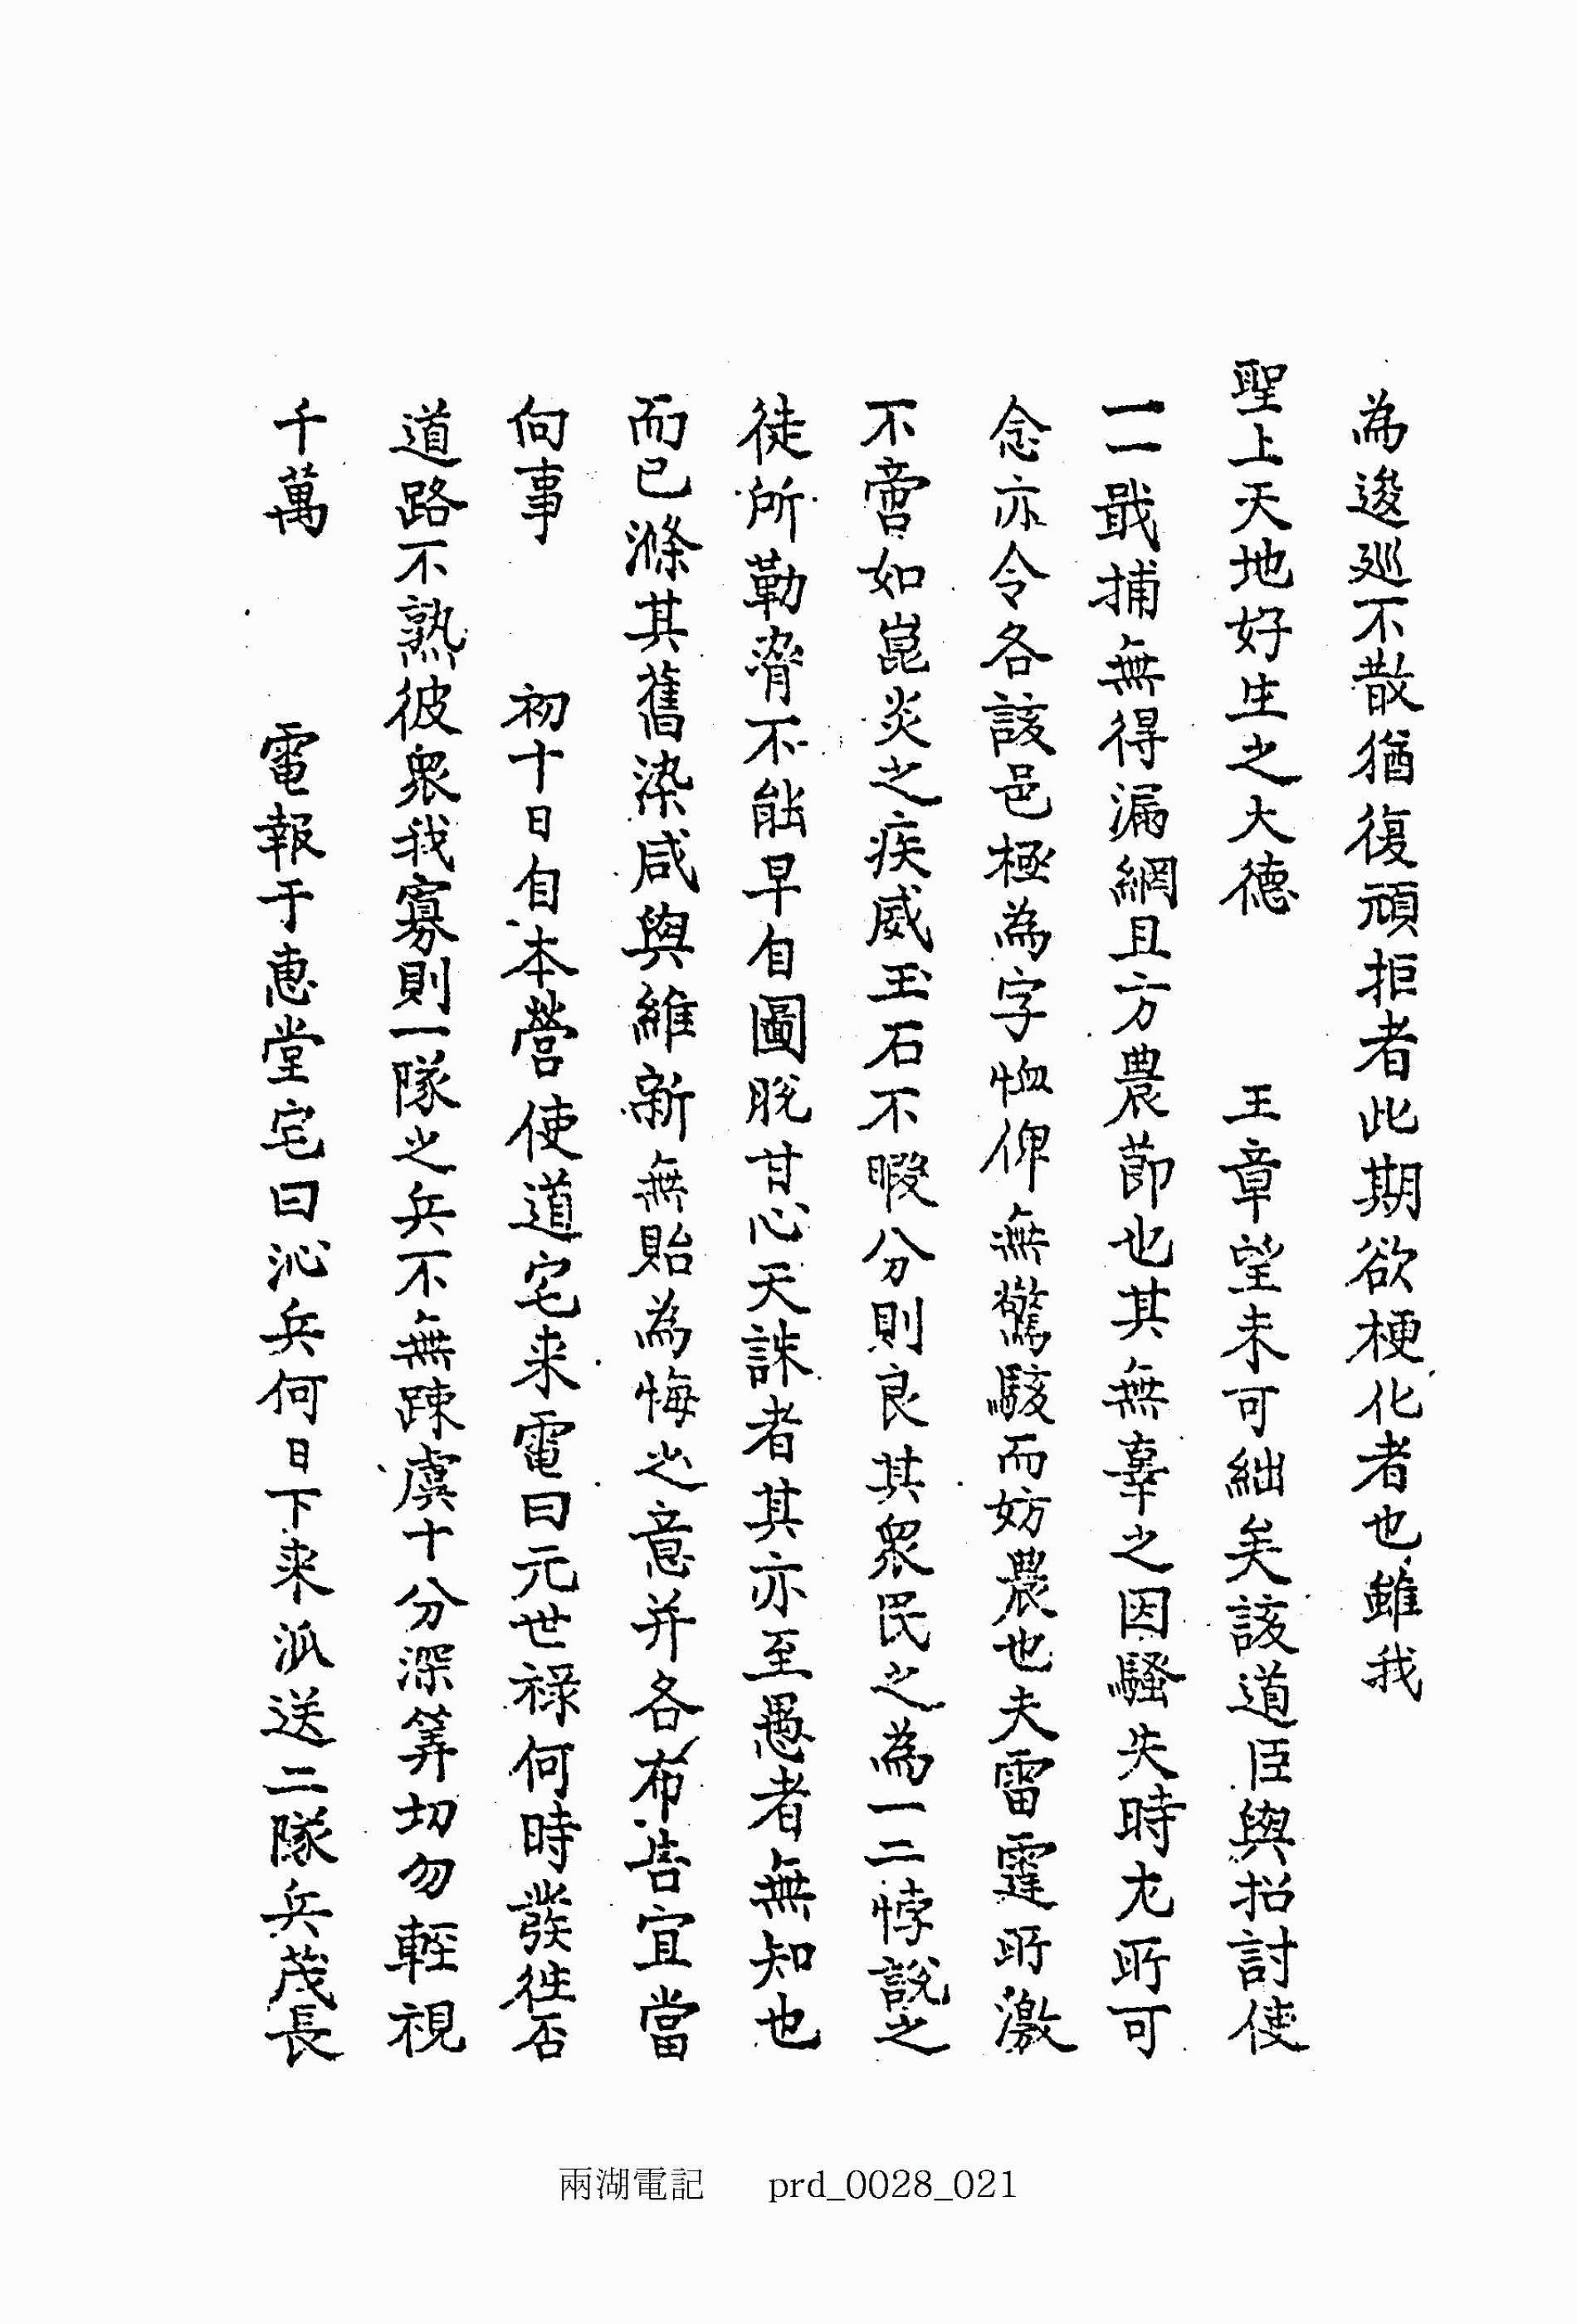 為逡巡不散猶復頑拒者此期欲梗化者也雖我
聖上天地好生之大德 王章望未可絀矣該道臣與招討使
一一戢捕無得漏網且方農節也其無辜之因騷失時尤所可
念亦令各該邑極為字恤俾無驚駭而妨農也夫雷霆所激
不啻如崑炎之疾威玉石不暇分則良其眾民之為一二悖說之
徒所勒脅不能早自圖脫甘心天誅者其亦至愚者無知也
而已滌其舊染咸與維新無貽為悔之意并各布告宜當
向事 初十日自本營使道宅来電曰元世祿何時發徃否
道路不熟彼眾我寡則一隊之兵不無踈虞十分深筭切勿輕視
千萬 電報于惠堂宅曰沁兵何日下来派送二隊兵茂長
兩湖電記 prd_0028_021